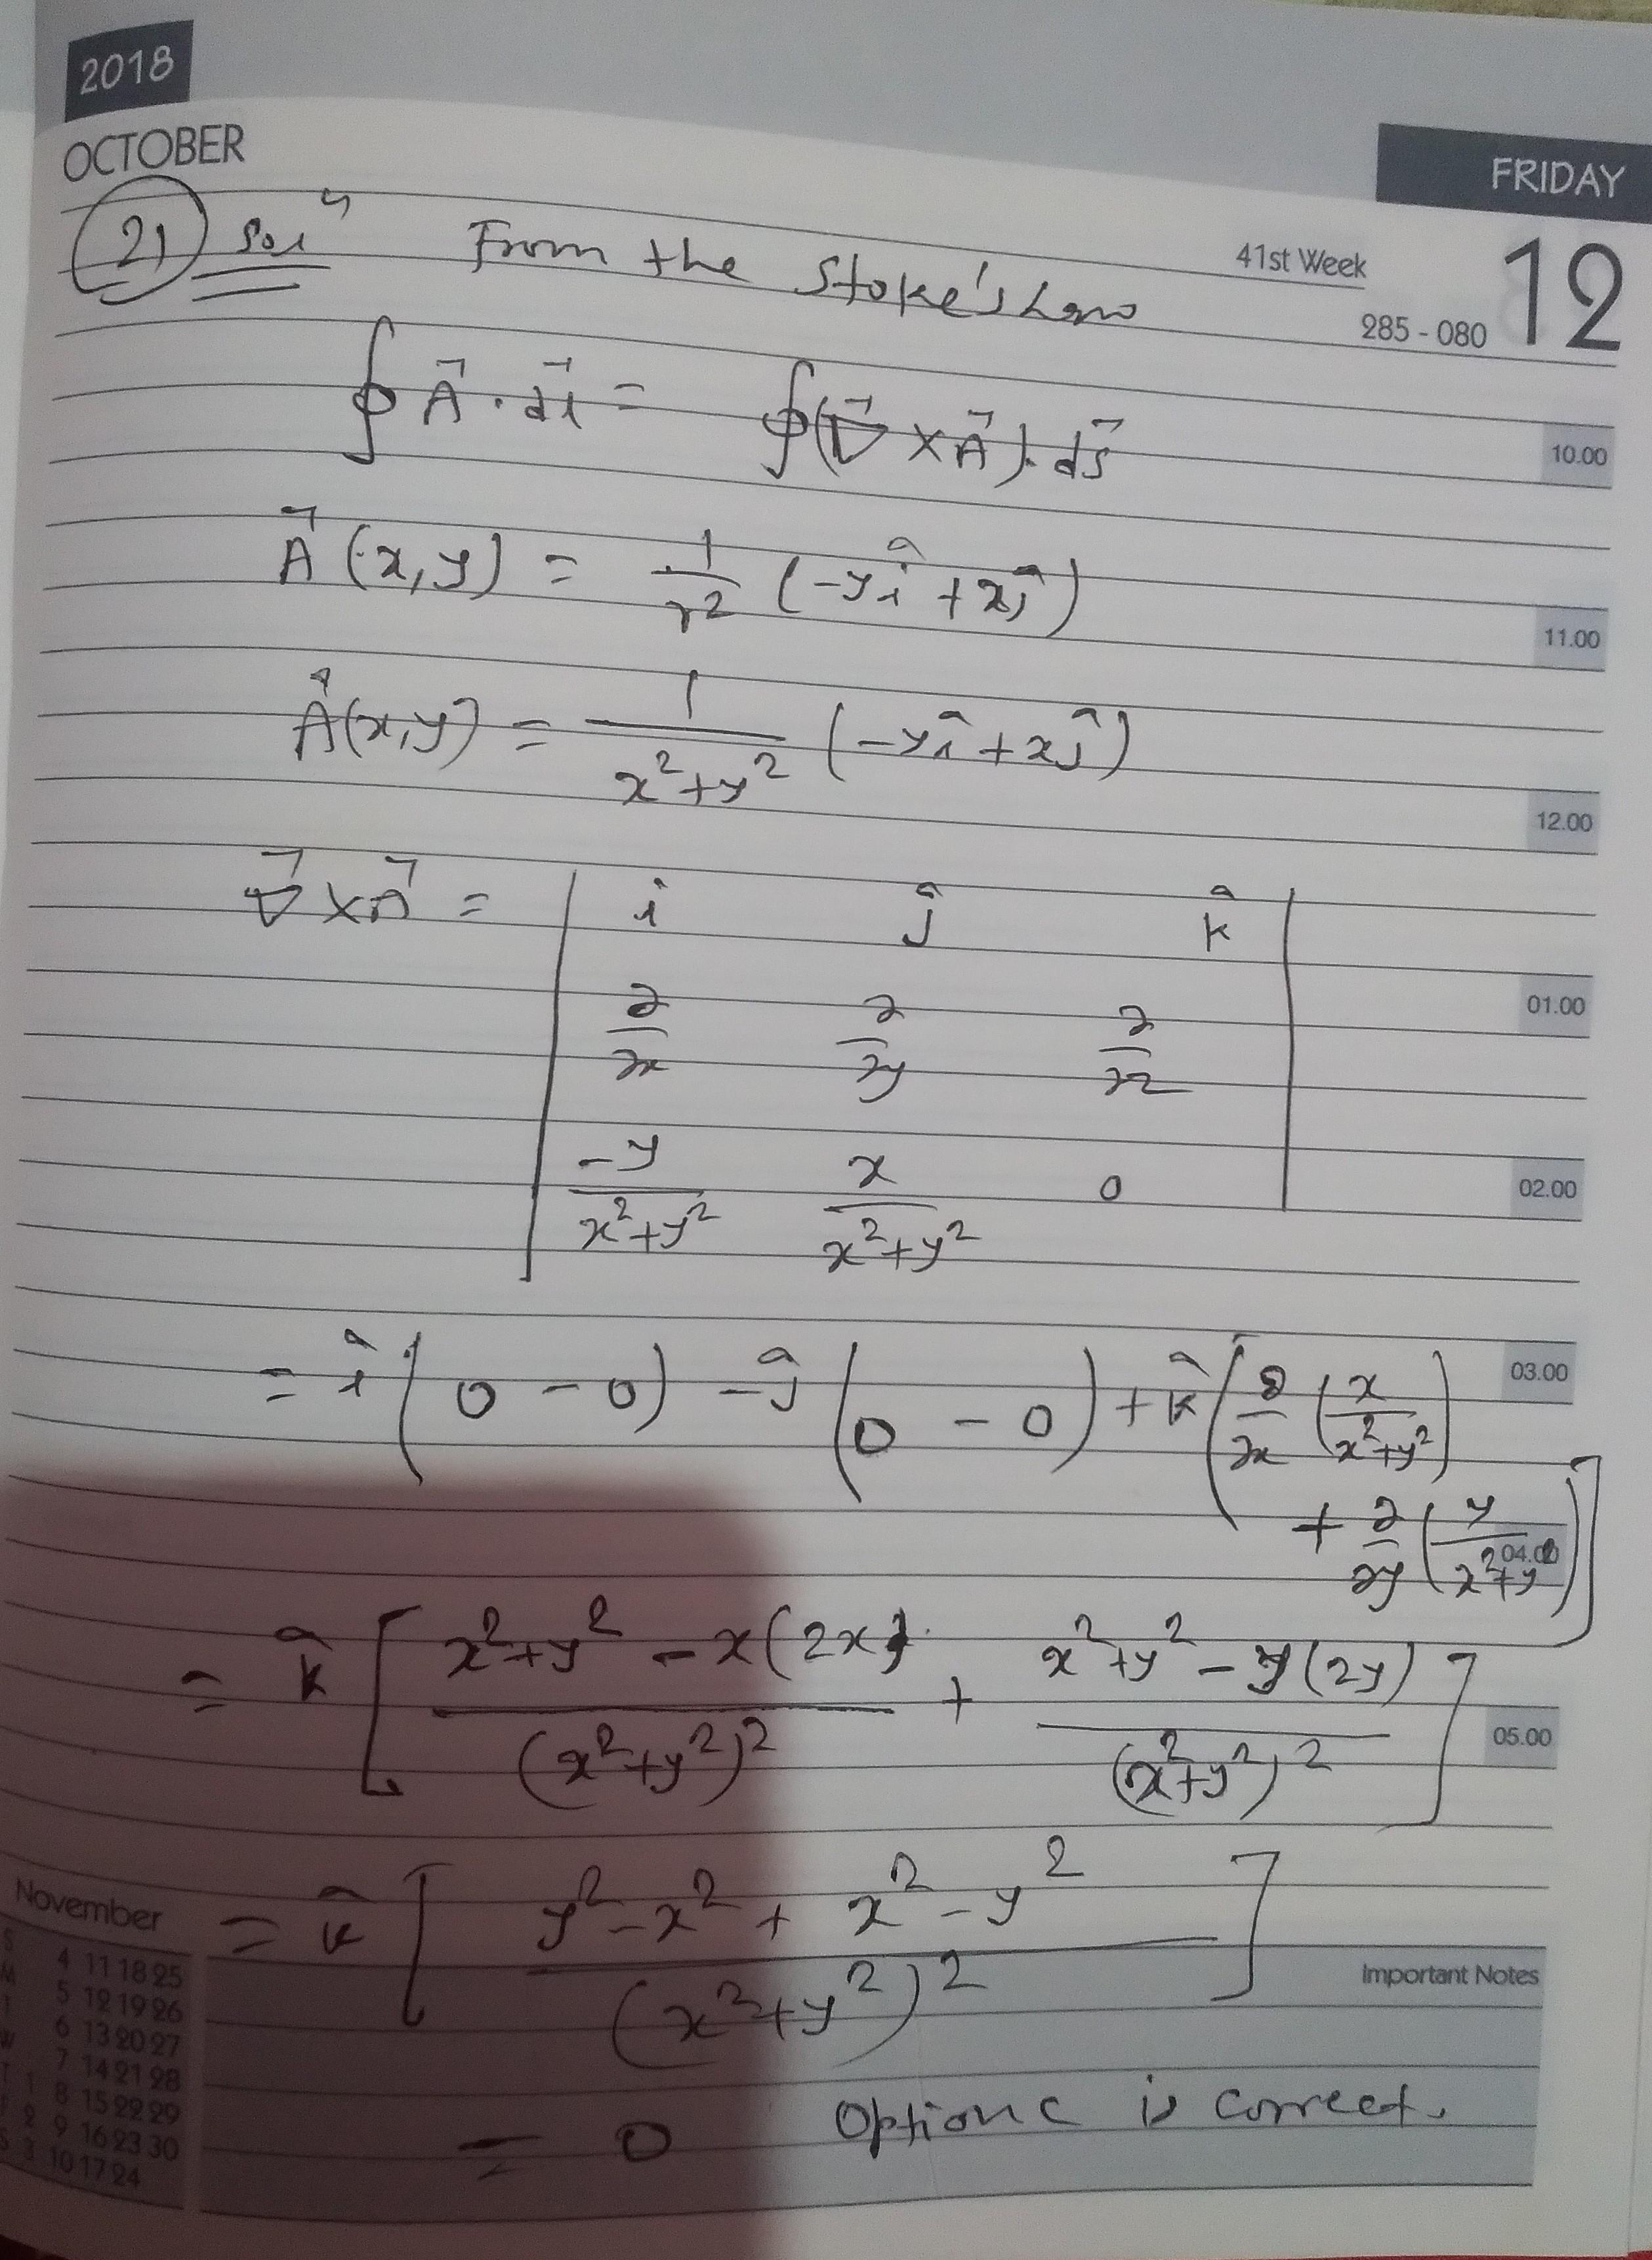 2018
OCTOBER
FRIDAY
41st Week
12
285 - 080
(21) Solⁿ From the Stoke's Law
∮ A⃗ . dl⃗ = ∮(∇⃗ × A⃗). ds⃗
10.00
A⃗ (x,y) = 1/r² (-yî + xĵ)
11.00
A⃗(x,y) = 1/(x²+y²) (-yî + xĵ)
12.00
∇⃗ × A⃗ = | i ĵ k̂ |
01.00
∂/∂x ∂/∂y ∂/∂z
-y/(x²+y²) x/(x²+y²) 0
02.00
= î (0 - 0) - ĵ (0 - 0) + k̂ ( ∂/∂x (x/(x²+y²))
03.00
+ ∂/∂y (y/(x²+y²)) ]
04.00
= k̂ [ (x²+y² - x(2x))/(x²+y²)² + (x²+y² - y(2y))/(x²+y²)² ]
05.00
= k̂ [ (y² - x² + x² - y²)/(x²+y²)² ]
= 0 Option c is correct.
Important Notes
November
S 4 11 18 25
M 5 12 19 26
T 6 13 20 27
W 7 14 21 28
T 1 8 15 22 29
F 2 9 16 23 30
S 3 10 17 24